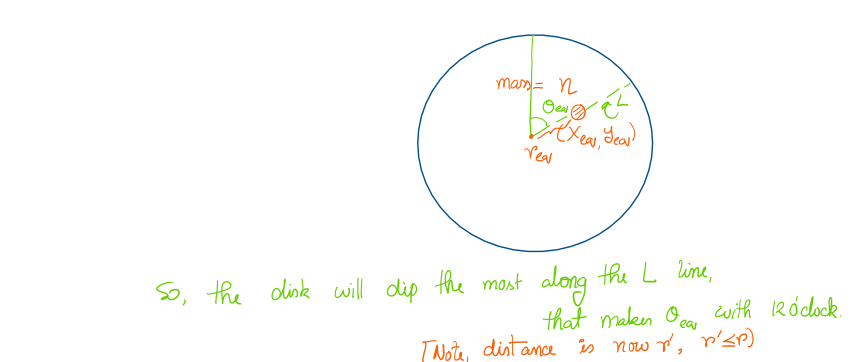 mass = n
θeav
L
(Xeav, yeav)
reav
So, the disk will dip the most along the L line,
that makes θeav with 12 o'clock.
[Note, distance is now r', r' ≤ r)